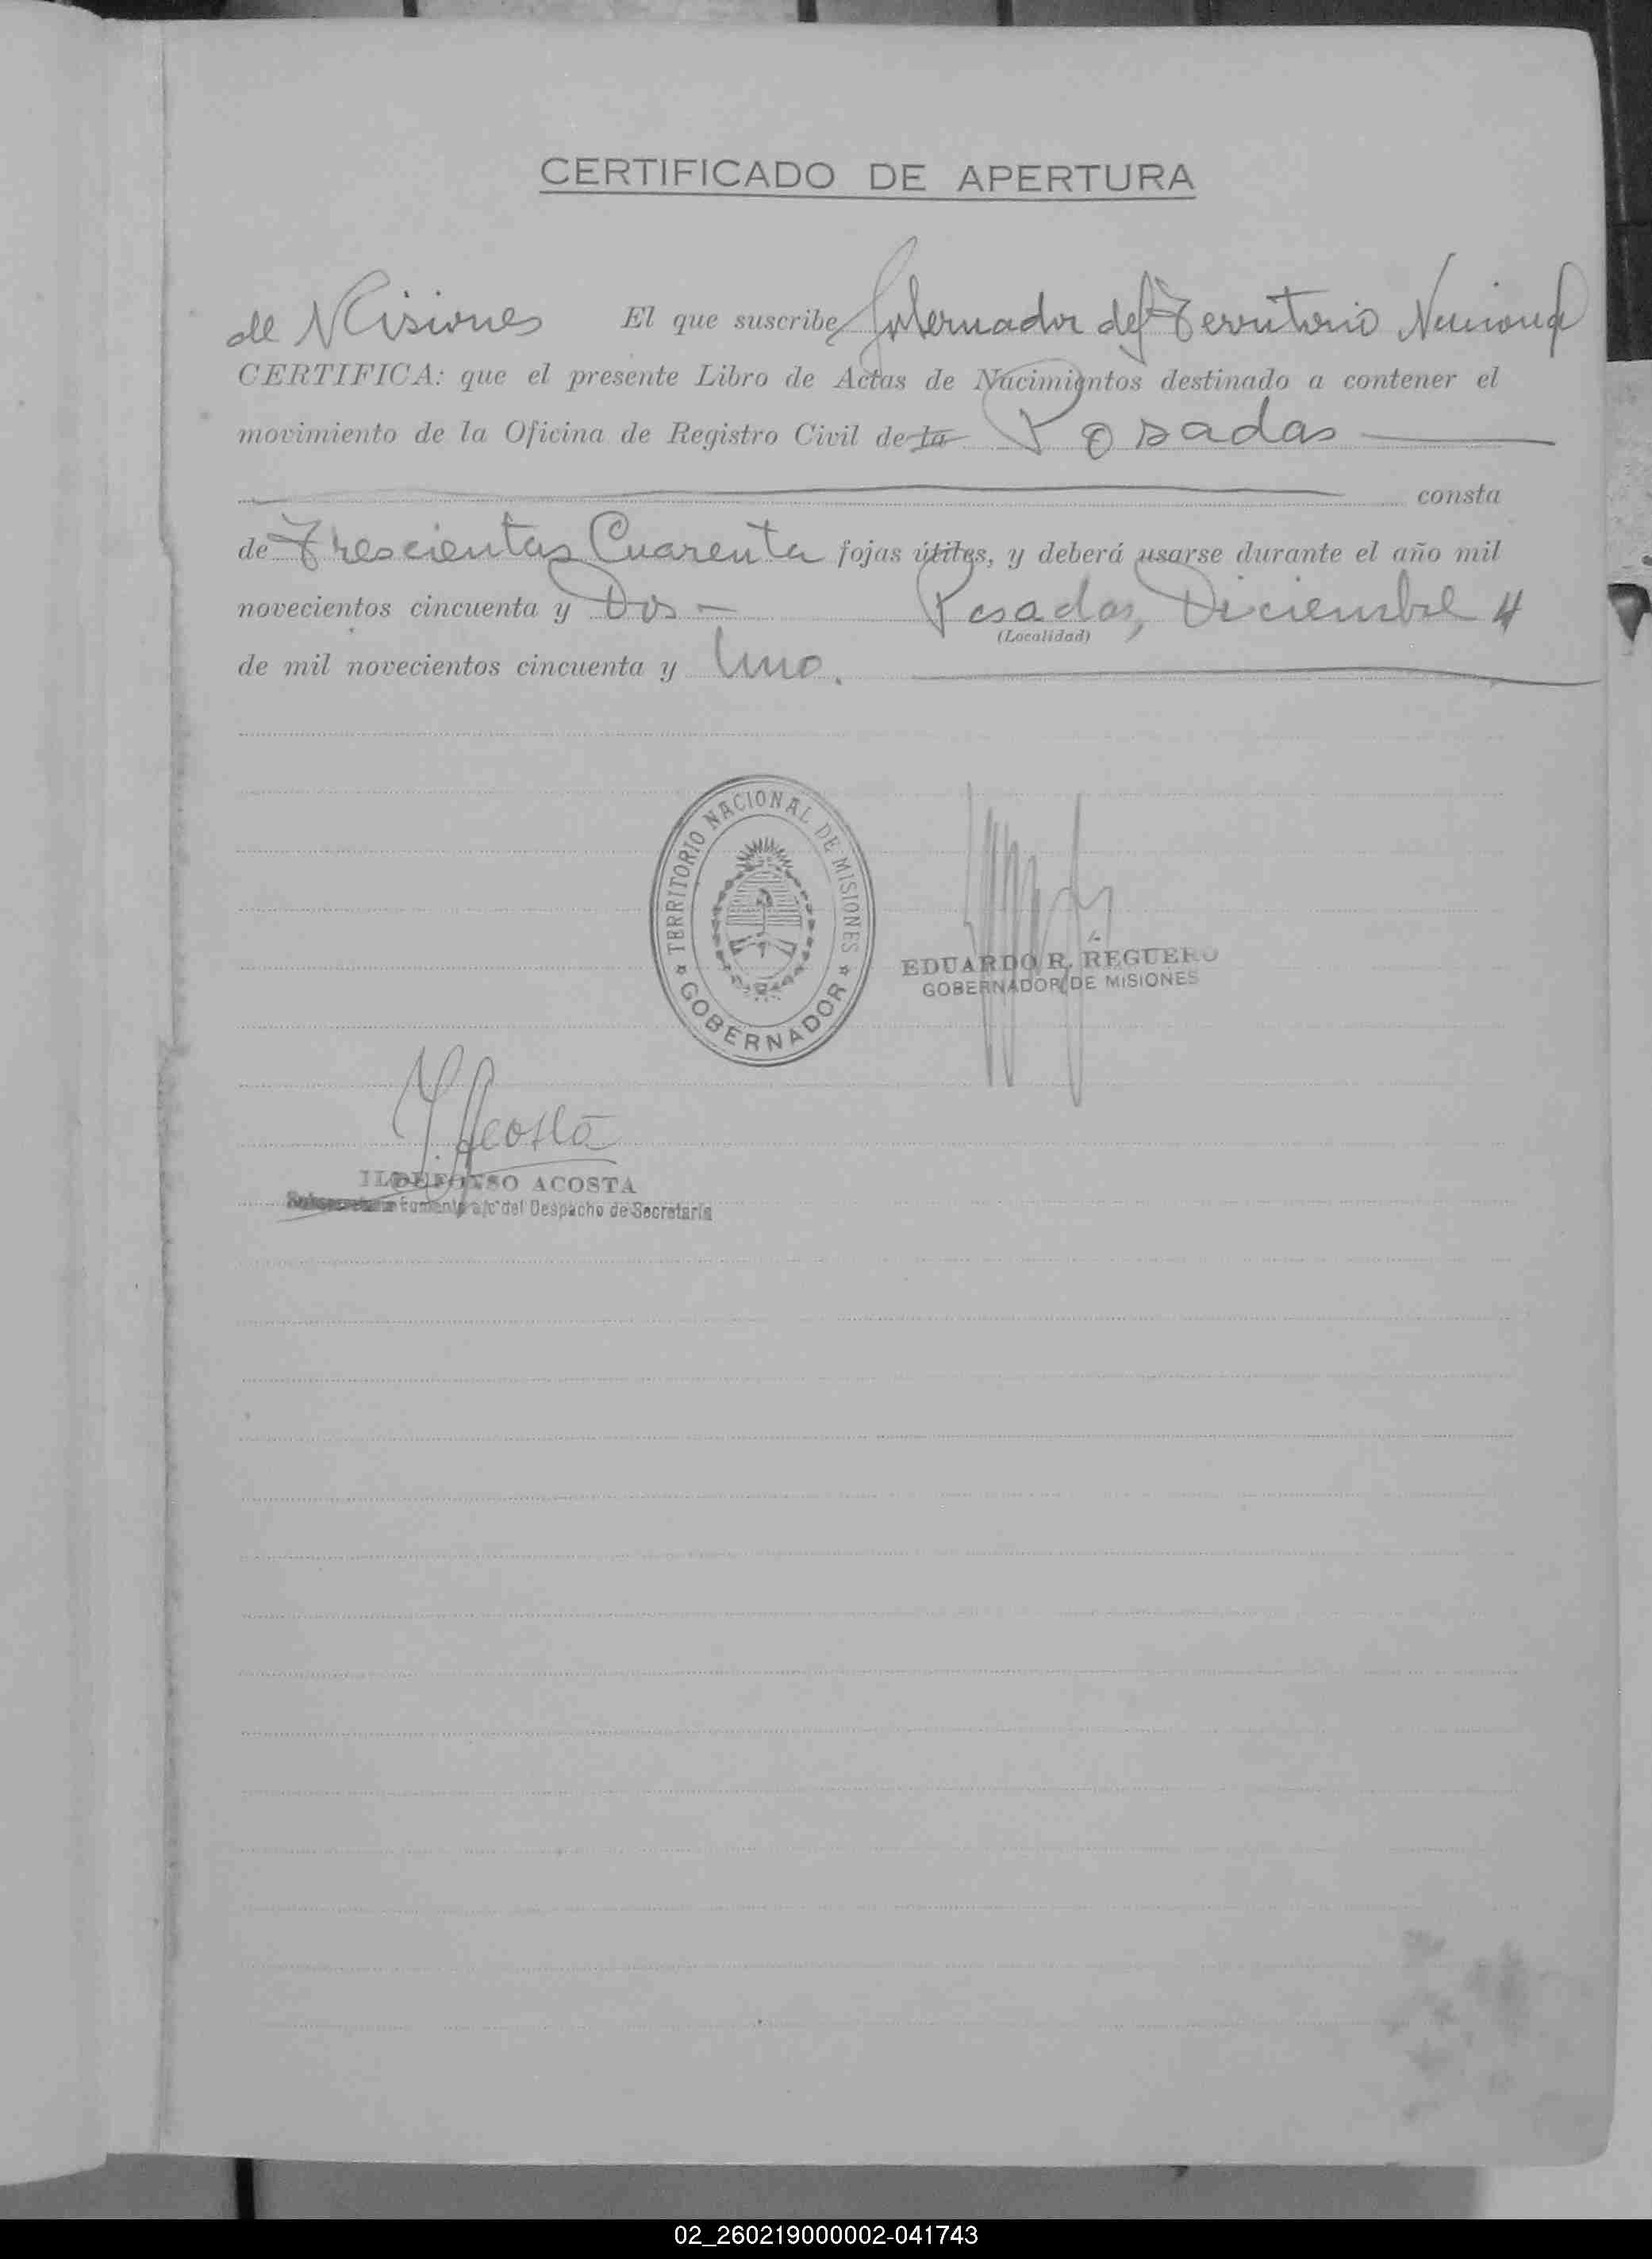 CERTIFICADO DE APERTURA
El que suscribe Gobernador del Territorio Nacional
de Misiones
CERTIFICA: que el presente Libro de Actas de Nacimientos destinado a contener el
movimiento de la Oficina de Registro Civil de la Posadas
consta
de Trescientas Cuarenta fojas útiles, y deberá usarse durante el año mil
novecientos cincuenta y Dos - Posadas, Diciembre 4
(Localidad)
de mil novecientos cincuenta y Uno.
TERRITORIO NACIONAL DE MISIONES
GOBERNADOR
EDUARDO R. REGUERO
GOBERNADOR DE MISIONES
Y. Acosta
ILDEFONSO ACOSTA
Fomento a/c del Despacho de Secretaría
02_260219000002-041743